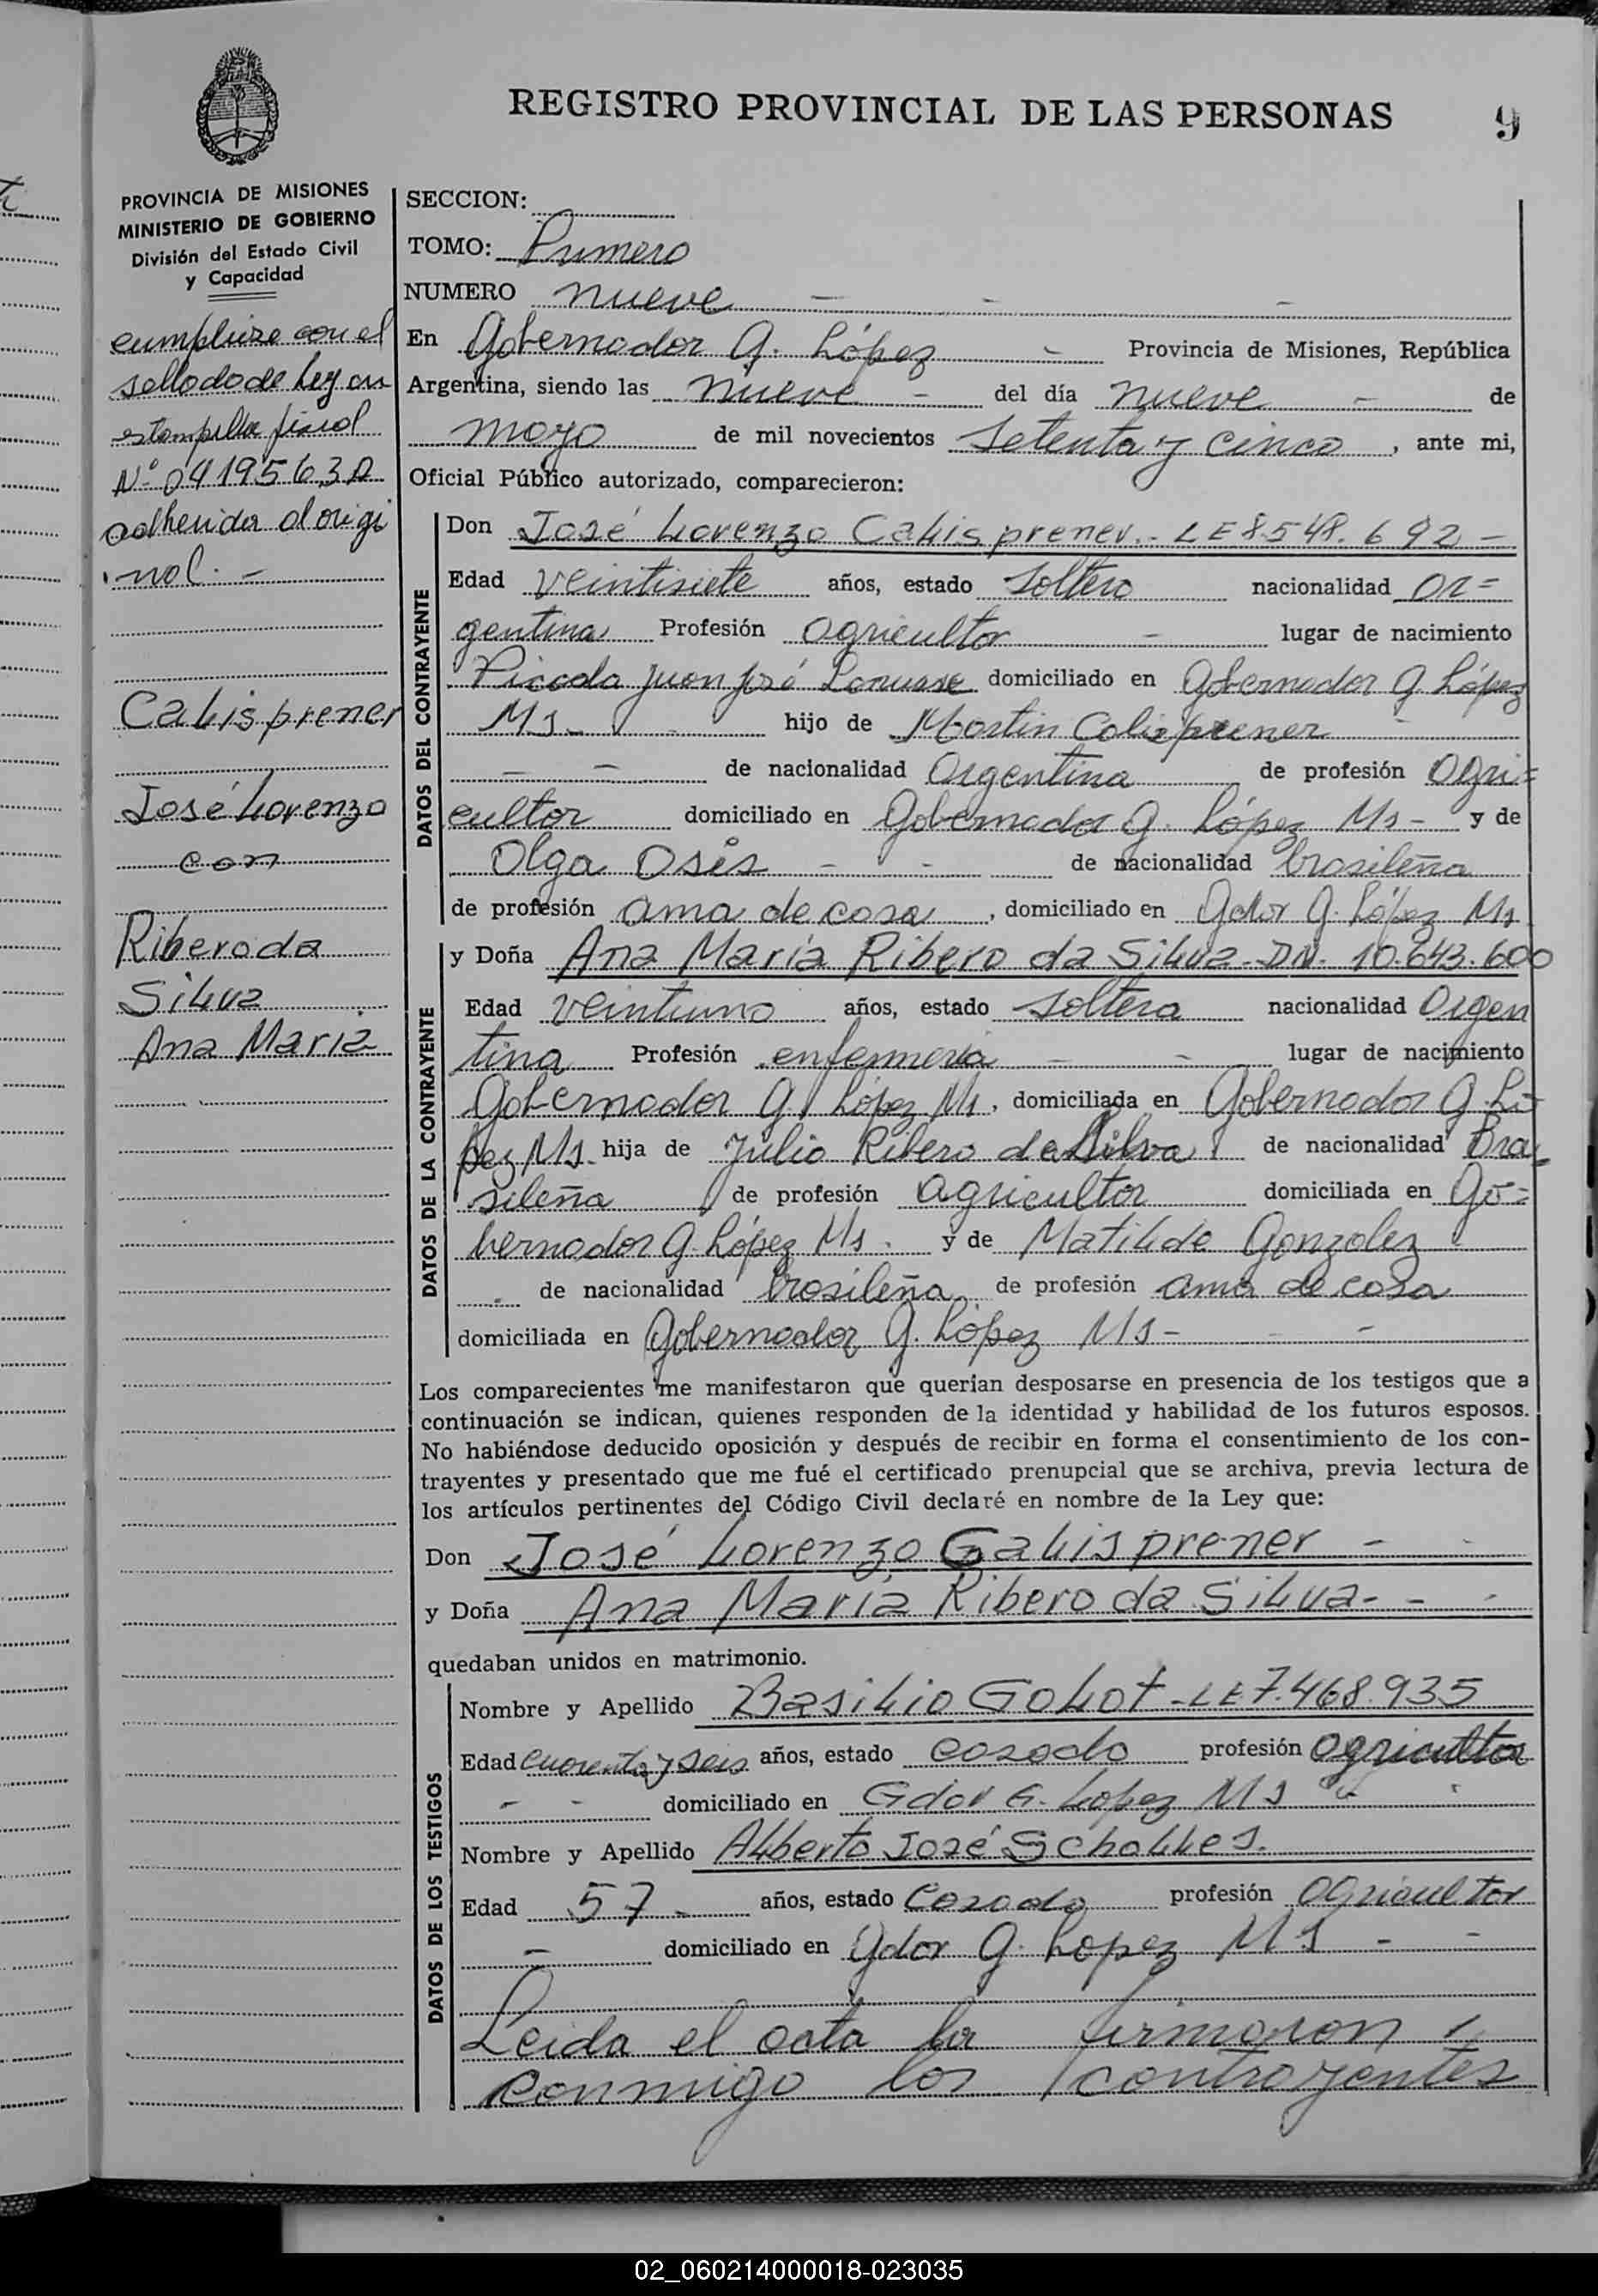 REGISTRO PROVINCIAL DE LAS PERSONAS
9
PROVINCIA DE MISIONES
MINISTERIO DE GOBIERNO
División del Estado Civil
y Capacidad
cumplióse con el
sellado de Ley en
estampilla fiscal
Nº 04195630
adherida al origi
nal. -
Calisprener
José Lorenzo
con
Ribero da
Silva
Ana Maria
SECCION:
TOMO: Primero
NUMERO nueve - - -
En Gobernador G. López - Provincia de Misiones, República
Argentina, siendo las nueve - del día nueve - de
mayo de mil novecientos setenta y cinco, ante mi,
Oficial Público autorizado, comparecieron:
DATOS DEL CONTRAYENTE
Don José Lorenzo Calisprener.- LE 8.548.692 -
Edad veintisiete años, estado soltero nacionalidad ar=
gentina Profesión agricultor - lugar de nacimiento
Picada Juan José Lanusse domiciliado en Gobernador G. López
Ms - hijo de Martin Calisprener
- - de nacionalidad Argentina de profesión agri=
cultor domiciliado en Gobernador G. López Ms - y de
Olga Osis - - de nacionalidad brasileña
de profesión ama de casa, domiciliado en Gdor G. López Ms
DATOS DE LA CONTRAYENTE
y Doña Ana María Ribero da Silva - DN. 10.643.600
Edad veintiuno años, estado soltera nacionalidad Argen
tina Profesión enfermera - - lugar de nacimiento
Gobernador G. López Ms, domiciliada en Gobernador G. Ló
pez Ms. hija de Julio Ribero da Silva de nacionalidad Bra=
sileña de profesión agricultor domiciliada en Go=
bernador G. López Ms. y de Matilde Gonzalez
- de nacionalidad brasileña de profesión ama de casa
domiciliada en Gobernador G. López Ms - - -
Los comparecientes me manifestaron que querían desposarse en presencia de los testigos que a
continuación se indican, quienes responden de la identidad y habilidad de los futuros esposos.
No habiéndose deducido oposición y después de recibir en forma el consentimiento de los con-
trayentes y presentado que me fué el certificado prenupcial que se archiva, previa lectura de
los artículos pertinentes del Código Civil declaré en nombre de la Ley que:
Don José Lorenzo Galisprener - -
y Doña Ana María Ribero da Silva - - -
quedaban unidos en matrimonio.
DATOS DE LOS TESTIGOS
Nombre y Apellido Basilio Golot - LE 7.468.935
Edad cuarenta y seis años, estado casado profesión agricultor
- - domiciliado en Gdor G. Lopez Ms
Nombre y Apellido Alberto José Scholles.
Edad 57 - años, estado Casado profesión agricultor
- domiciliado en Gdor G. Lopez Ms - -
Leida el acta la firmaron
conmigo los contrayentes
02_060214000018-023035